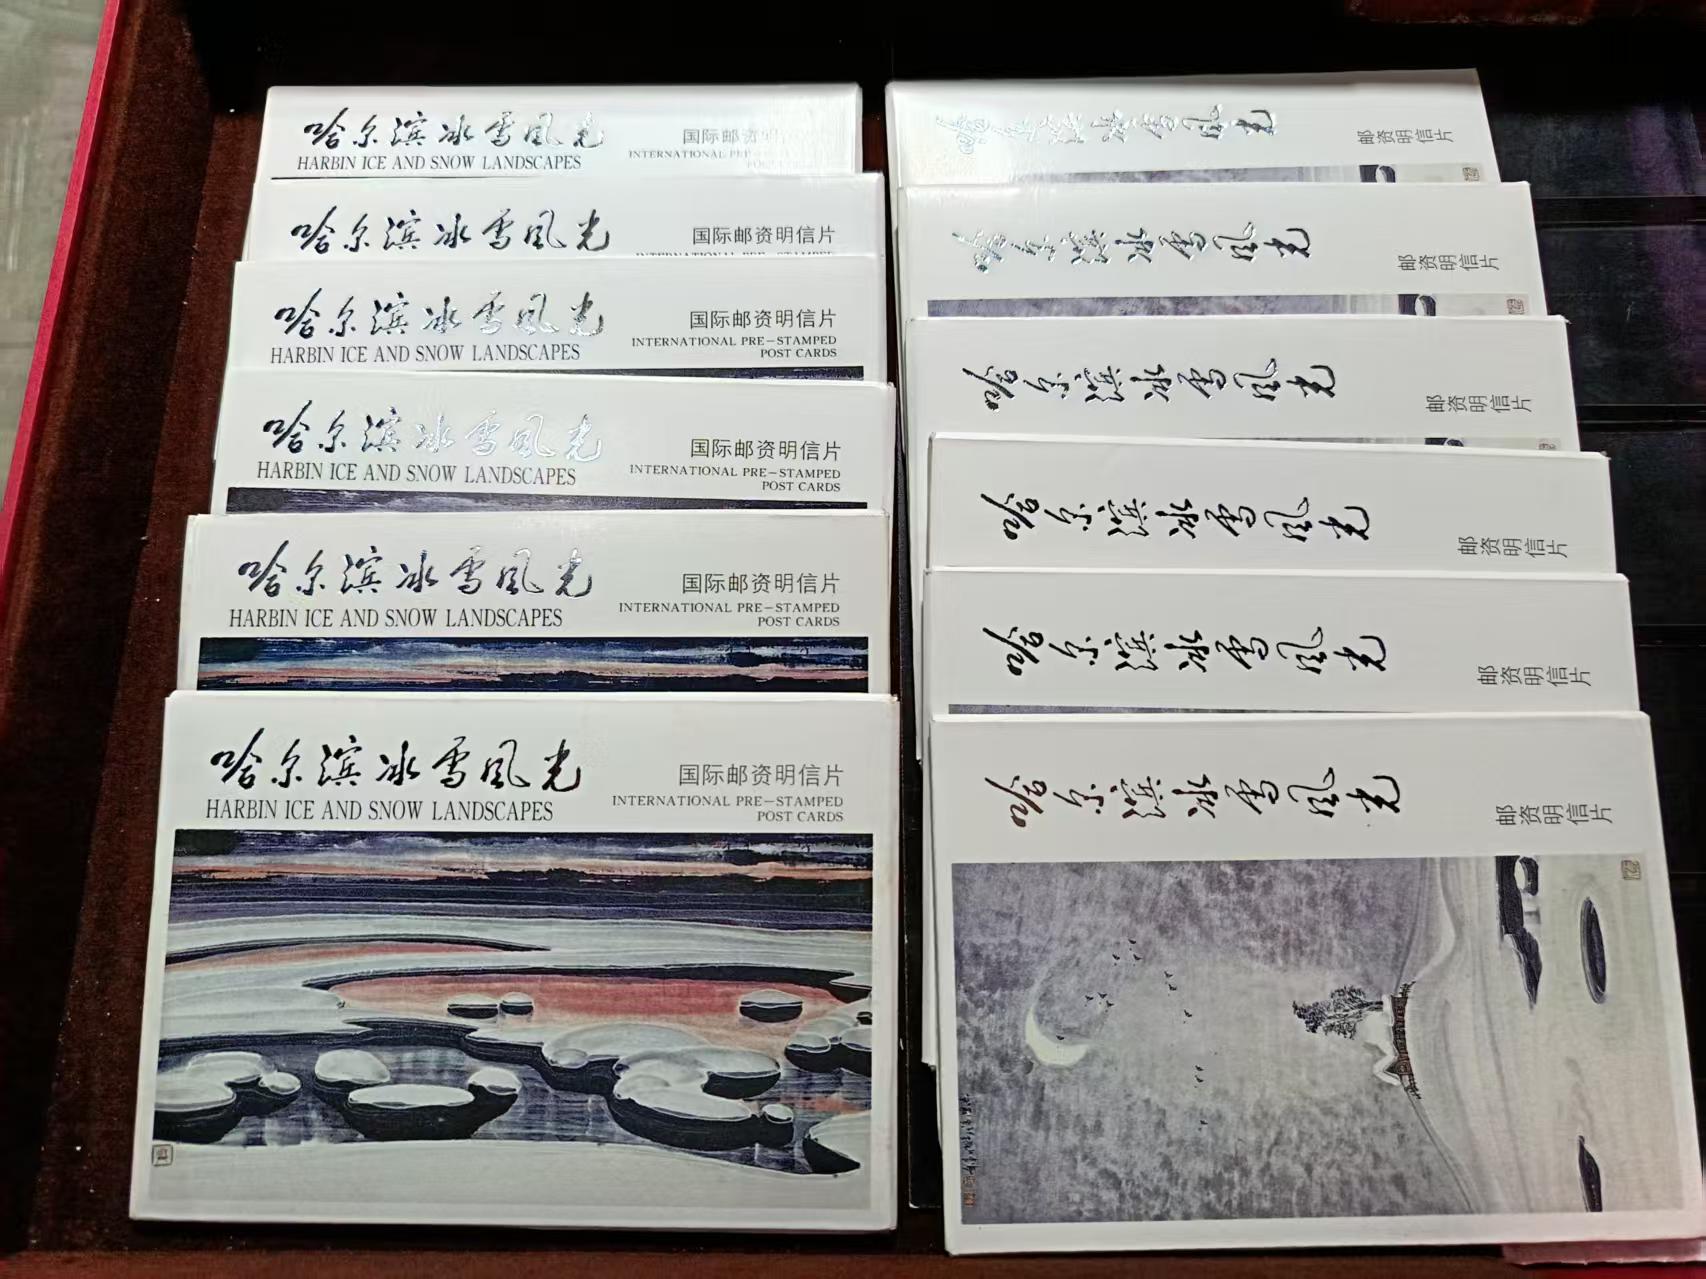 哈尔滨冰雪风光
国际邮资明信片
HARBIN ICE AND SNOW LANDSCAPES
INTERNATIONAL PRE
哈尔滨冰雪风光
国际邮资明信片
哈尔滨冰雪风光
国际邮资明信片
HARBIN ICE AND SNOW LANDSCAPES
INTERNATIONAL PRE-STAMPED
POST CARDS
哈尔滨冰雪风光
国际邮资明信片
HARBIN ICE AND SNOW LANDSCAPES
INTERNATIONAL PRE-STAMPED
POST CARDS
哈尔滨冰雪风光
国际邮资明信片
HARBIN ICE AND SNOW LANDSCAPES
INTERNATIONAL PRE-STAMPED
POST CARDS
哈尔滨冰雪风光
国际邮资明信片
HARBIN ICE AND SNOW LANDSCAPES
INTERNATIONAL PRE-STAMPED
POST CARDS
哈尔滨冰雪风光
邮资明信片
哈尔滨冰雪风光
邮资明信片
哈尔滨冰雪风光
邮资明信片
哈尔滨冰雪风光
邮资明信片
哈尔滨冰雪风光
邮资明信片
哈尔滨冰雪风光
邮资明信片